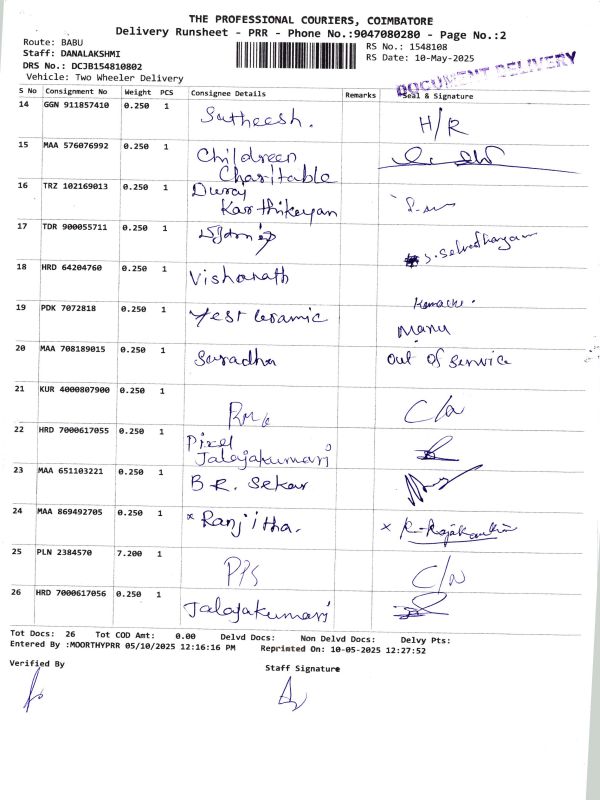 THE PROFESSIONAL COURIERS, COIMBATORE
Delivery Runsheet - PRR - Phone No.:9047080280 - Page No.:2
Route: BABU
Staff: DANALAKSHMI
DRS No.: DCJB154810802
Vehicle: Two Wheeler Delivery
RS No.: 1548108
RS Date: 10-May-2025
DOCUMENT DELIVERY
S No Consignment No Weight PCS Consignee Details Remarks Seal & Signature
14 GGN 911857410 0.250 1 Sutheesh. H/R
15 MAA 576076992 0.250 1 Children
Charitable
16 TRZ 102169013 0.250 1
Karthikeyan
17 TDR 900055711 0.250 1
18 HRD 64204760 0.250 1 Vishanath
19 PDK 7072818 0.250 1 Test Ceramic Manu
20 MAA 708189015 0.250 1 Suradha out of service
21 KUR 4000807900 0.250 1
22 HRD 7000617055 0.250 1 Pixel
Jalajakumari
23 MAA 651103221 0.250 1 B R. Sekar
24 MAA 869492705 0.250 1 * Ranjitha. ×
25 PLN 2384570 7.200 1
26 HRD 7000617056 0.250 1 Jalajakumari
Tot Docs: 26 Tot COD Amt: 0.00 Delvd Docs: Non Delvd Docs: Delvy Pts:
Entered By :MOORTHYPRR 05/10/2025 12:16:16 PM Reprinted On: 10-05-2025 12:27:52
Verified By Staff Signature